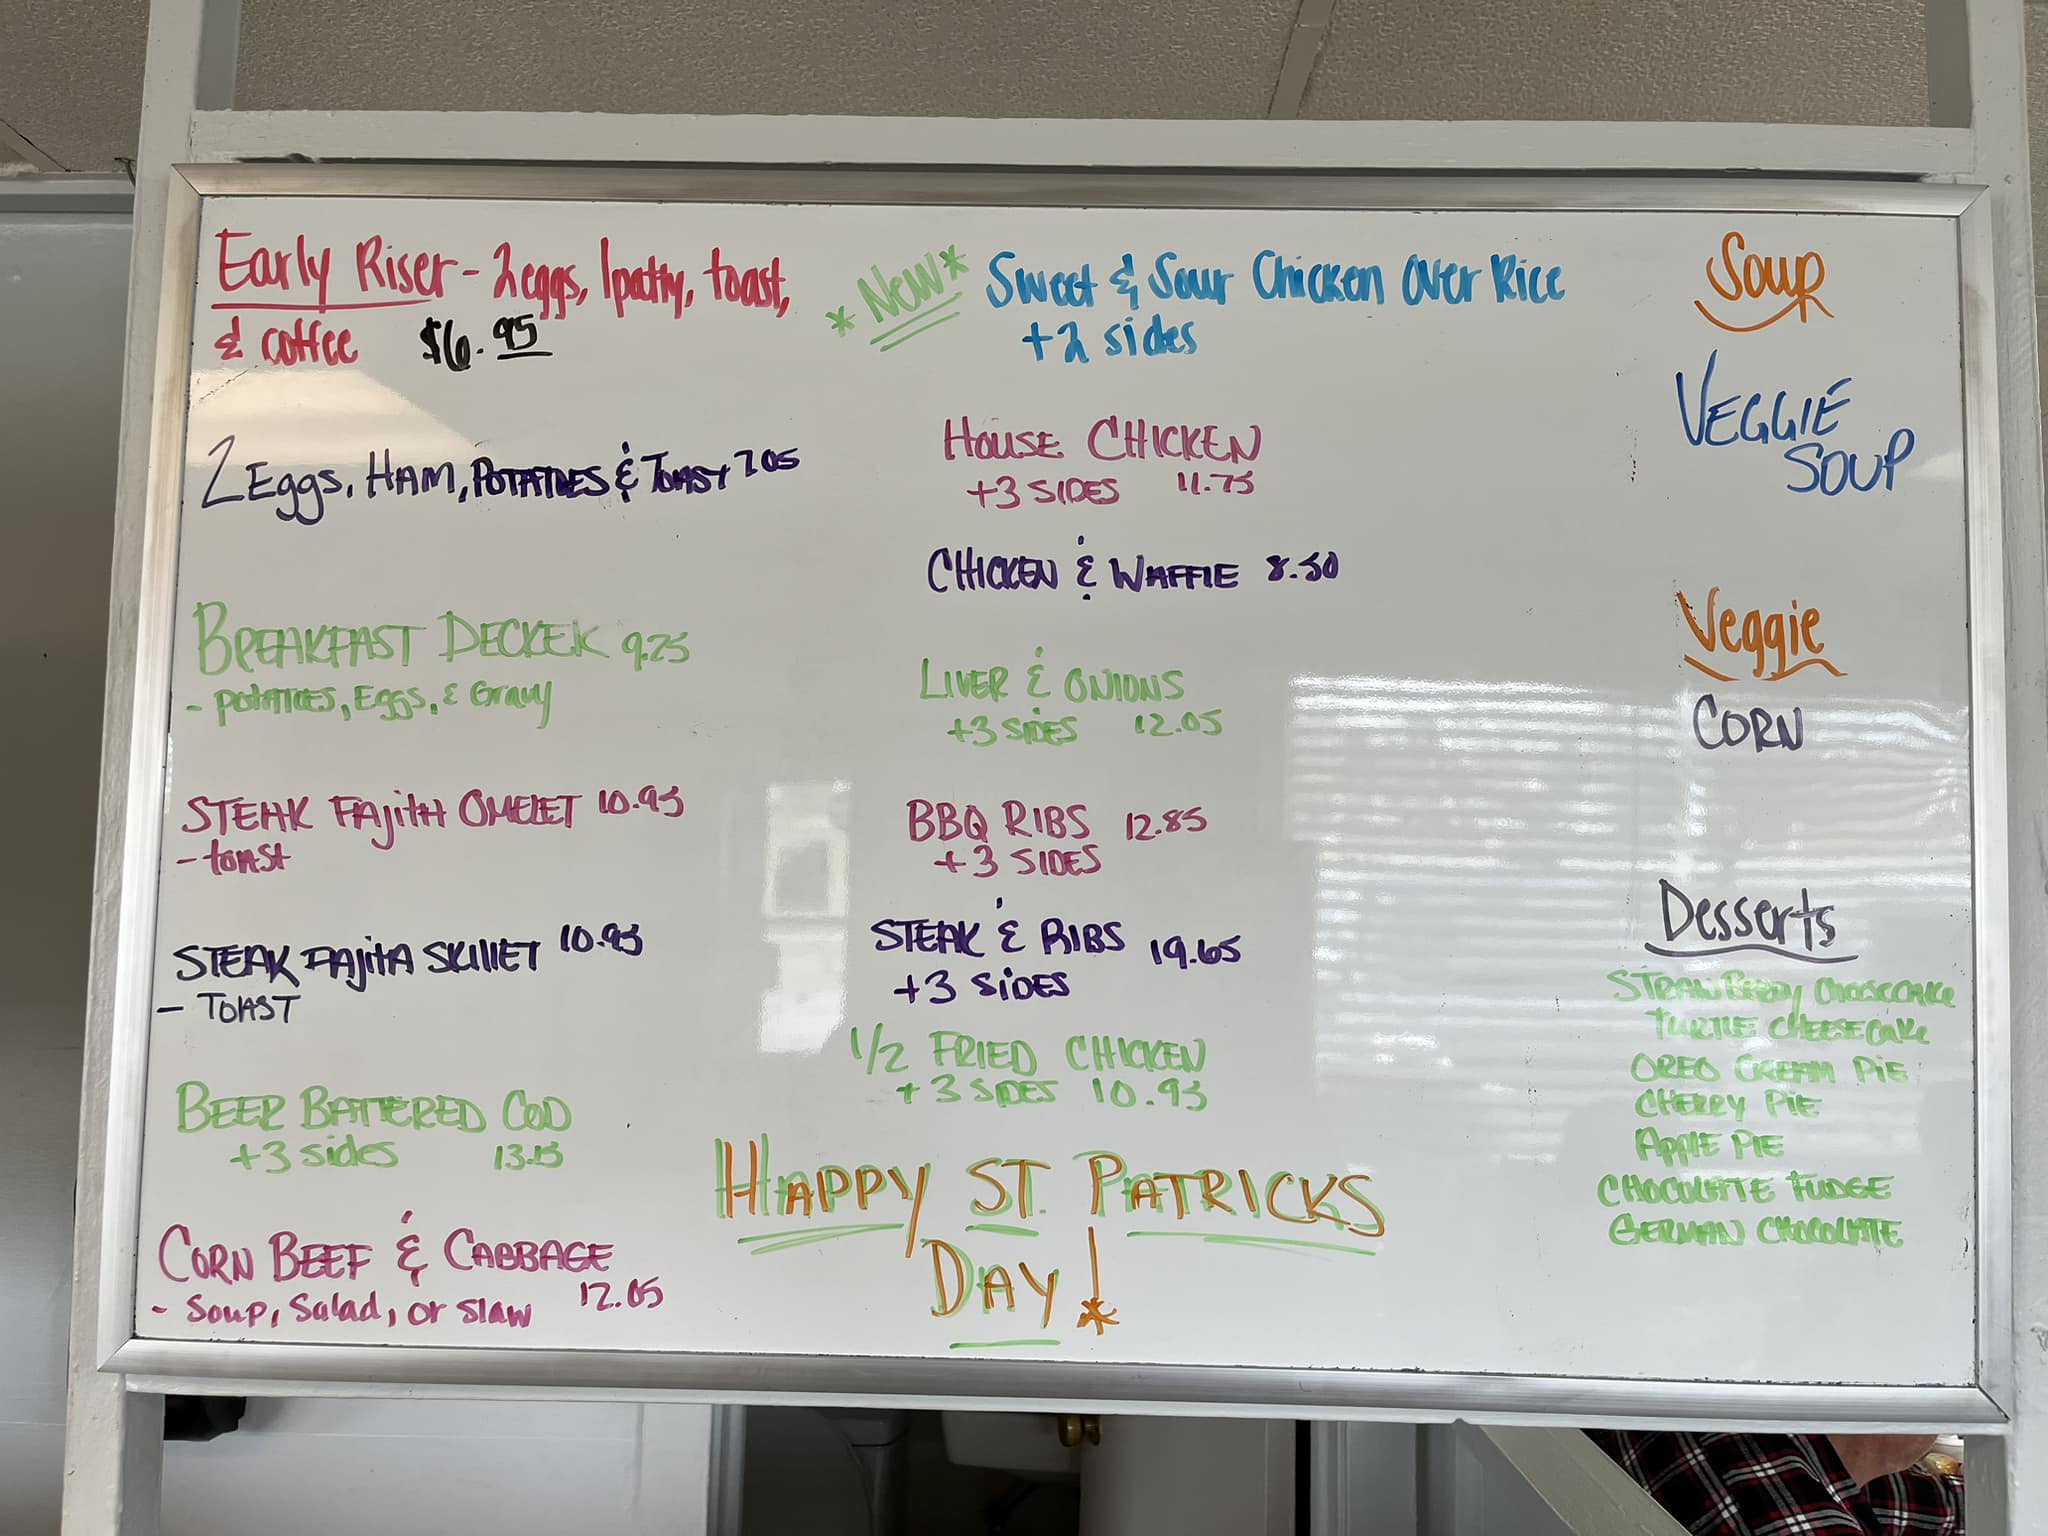 Early Riser - 2 eggs, 1 patty, toast,
& coffee $6.95
2 Eggs, HAM, POTATOES & TOAST 7.05
BREAKFAST DECKER 9.25
- POTATOES, Eggs, & Gravy
STEAK FAjitA OMELET 10.95
- tOAST
STEAK FAjitA SKILLET 10.95
- TOAST
BEER BATTERED COD
+3 sides 13.15
CORN BEEF & CABBAGE
- Soup, Salad, or Slaw 12.05
*New* Sweet & Sour Chicken Over Rice
+2 sides
HOUSE CHICKEN
+3 SIDES 11.75
CHICKEN & WAFFLE 8.50
LIVER & ONIONS
+3 SiDES 12.05
BBQ RIBS 12.85
+3 SIDES
STEAK & RIBS 19.65
+3 SiDES
1/2 FRIED CHICKEN
+3 SIDES 10.95
HAPPY ST. PATRICKS
DAY!
Soup
VEGGIE
SOUP
Veggie
CORN
Desserts
STRAWBERRY CHEESECAKE
TURTLE CHEESECAKE
OREO CREAM PiE
CHERRY PIE
APPLE PIE
CHOCOLATE FUDGE
GERMAN CHOCOLATE